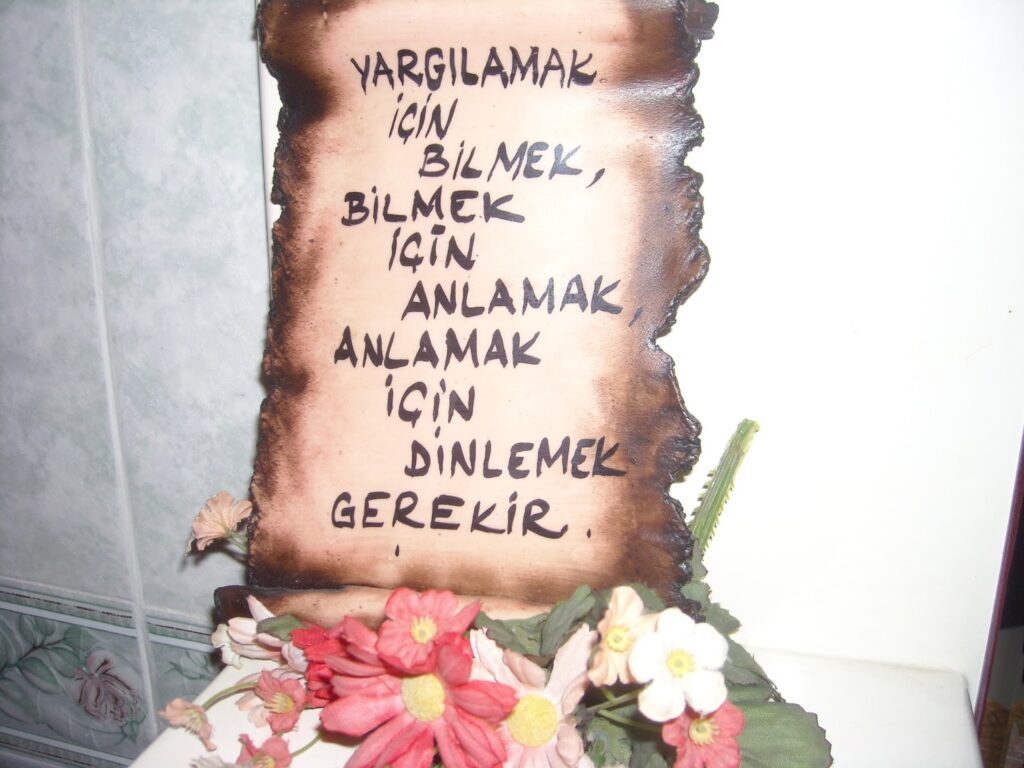 YARGILAMAK
İÇİN
BİLMEK,
BİLMEK
İÇİN
ANLAMAK,
ANLAMAK
İÇİN
DİNLEMEK
GEREKİR.